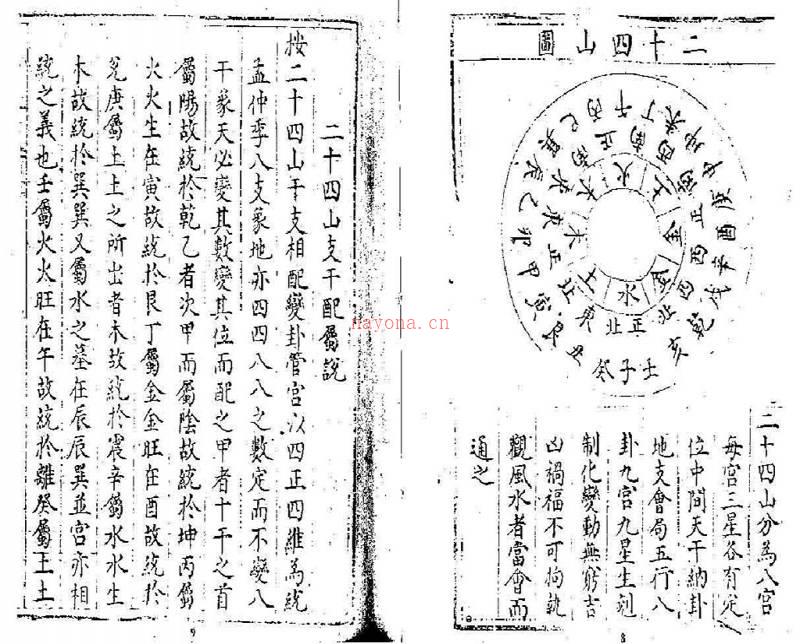 二十四山圖
壬子癸
丑艮寅
甲卯乙
辰巽巳
丙午丁
未坤申
庚酉辛
戌乾亥
正北
東北
正東
東南
正南
西南
正西
西北
水
土
木
木
火
土
金
金
二十四山分為八宮
每宮三星各有定
位中間天干納卦
地支會局五行八
卦九宮九星生剋
制化變動無窮吉
凶禍福不可拘執
觀風水者當會而
通之
8
二十四山支干配屬說
按二十四山干支相配變卦管宮以四正四維為統
孟仲季八支象地亦四四八八之數定而不變八
干象天必變其數變其位而配之甲者十干之首
屬陽故統於乾乙者次甲而屬陰故統於坤丙屬
火火生在寅故統於艮丁屬金金旺在酉故統於
兌庚屬土土之所出者木故統於震辛屬水水生
木故統於巽巽又屬水之墓在辰辰巽並宮亦相
統之義也壬屬火火旺在午故統於離癸屬土土
9
nayona.cn